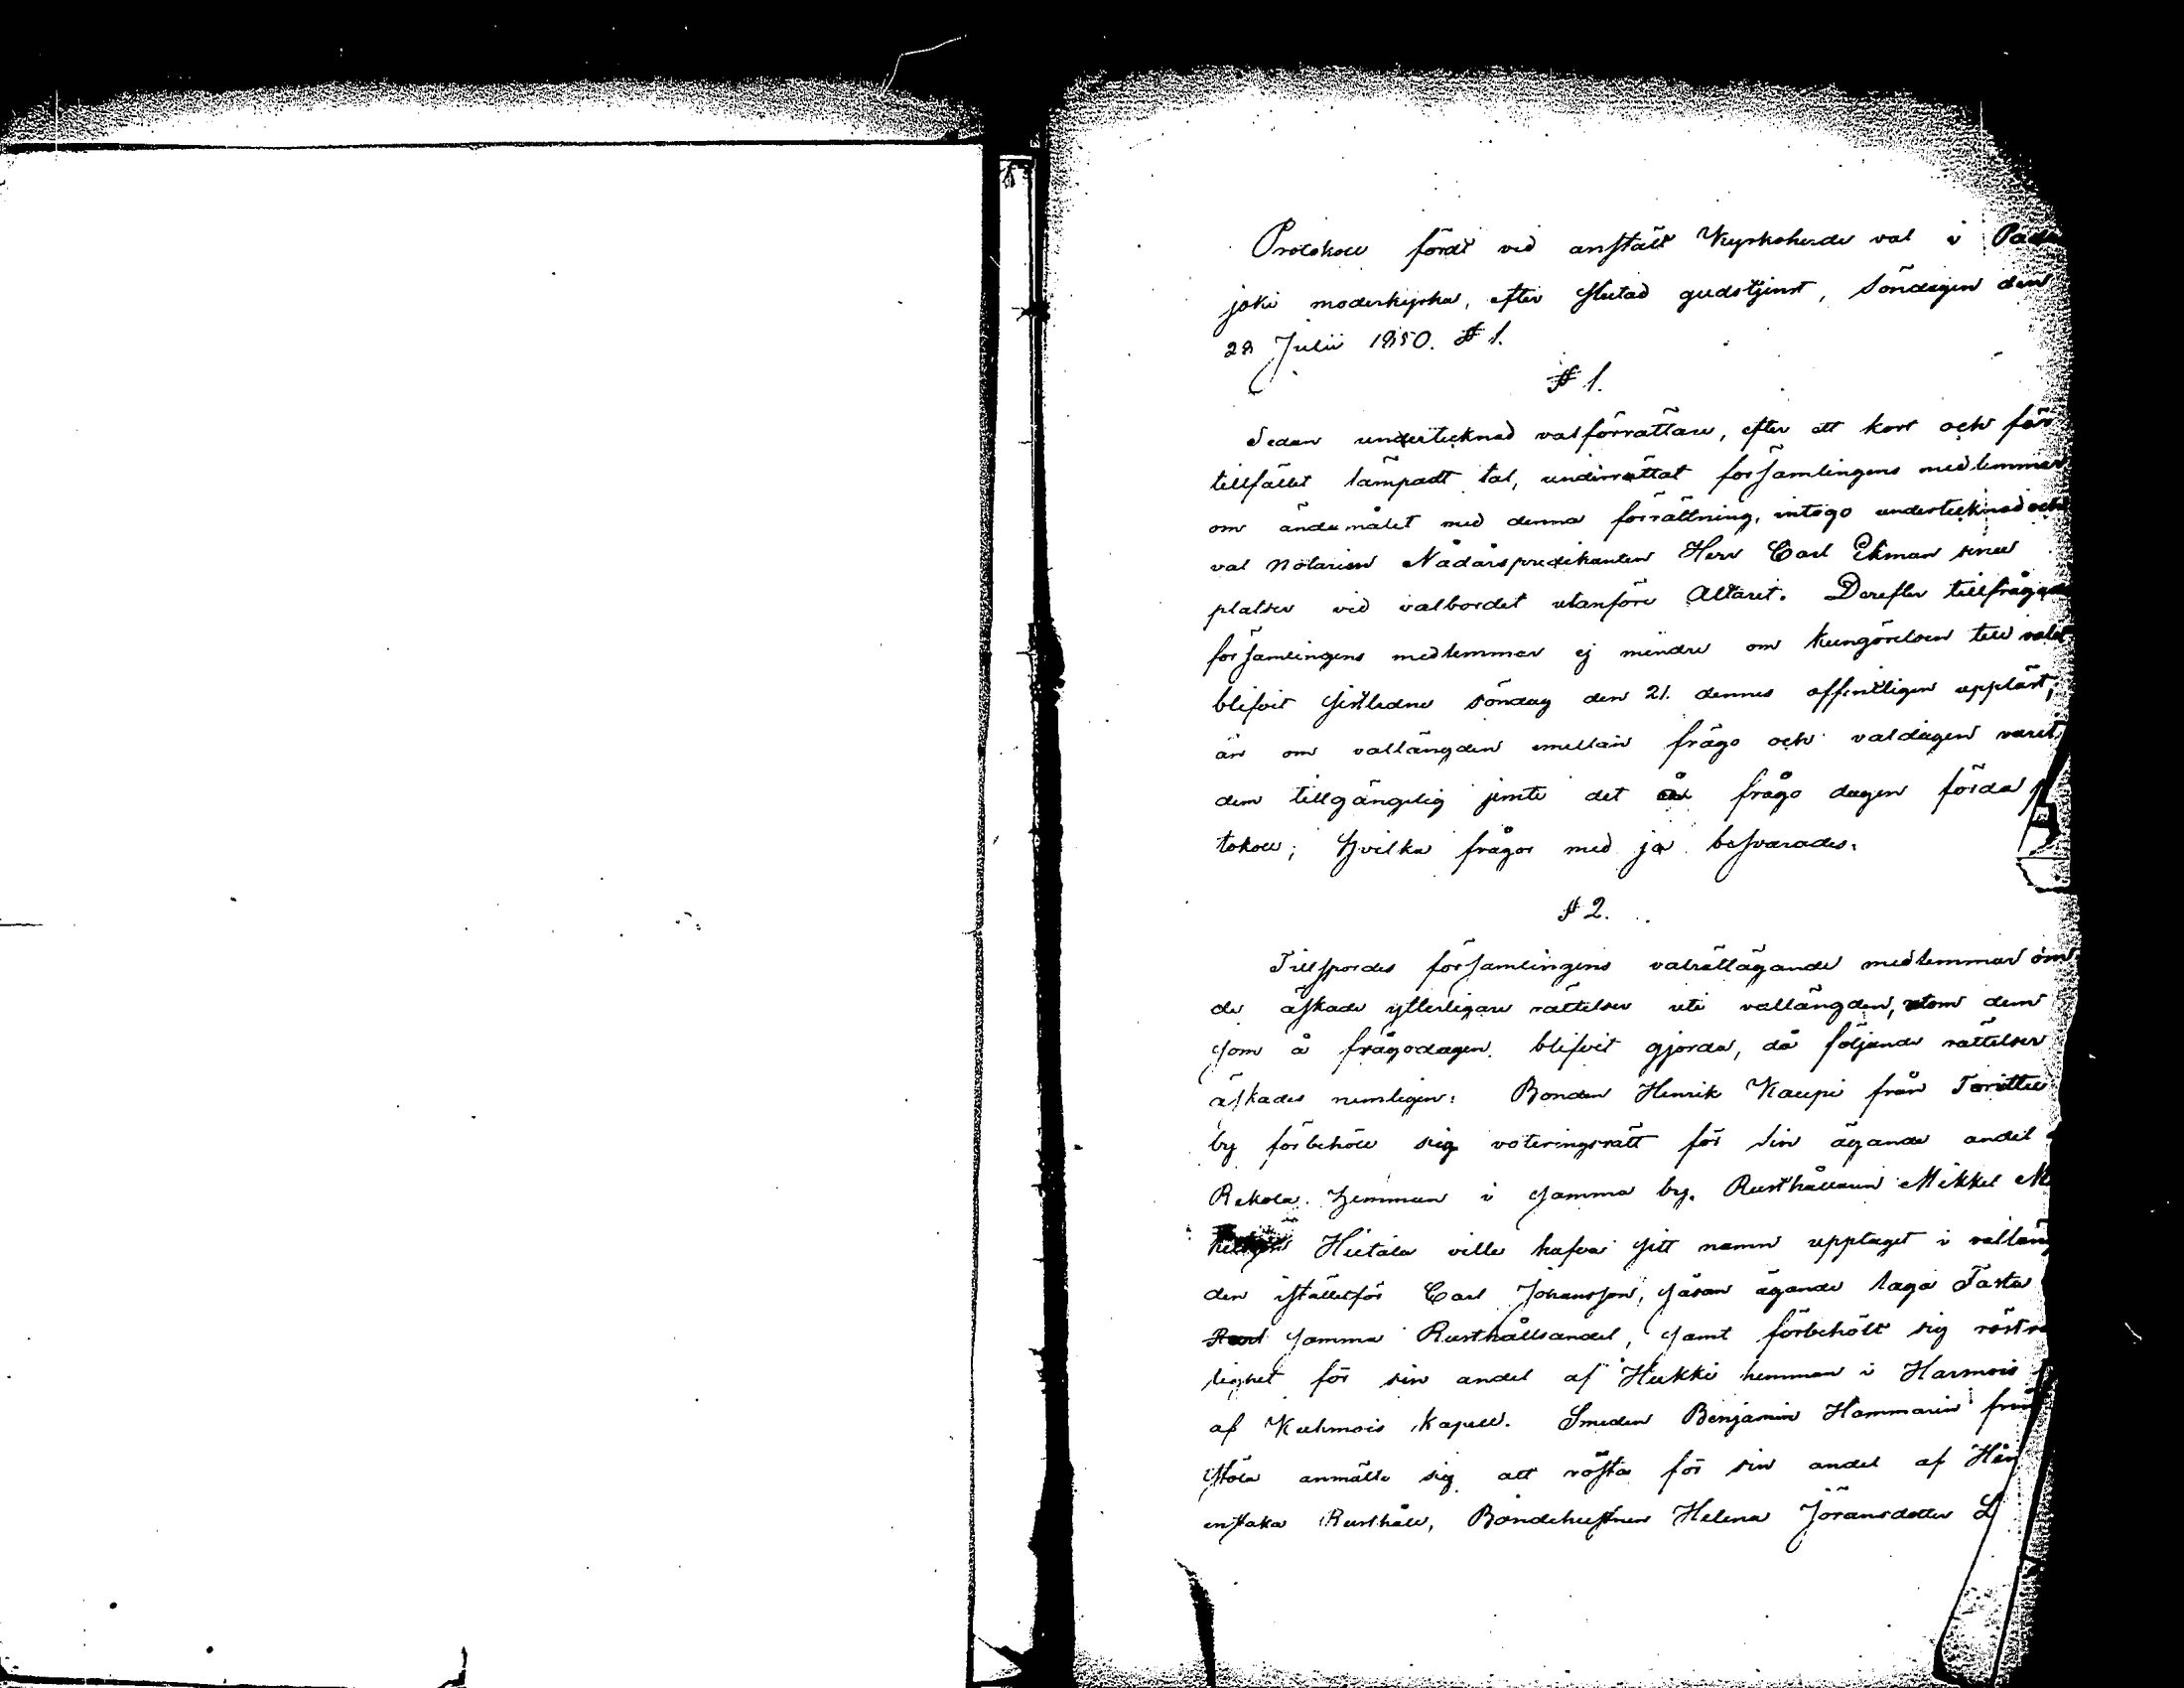 Protokoll fördt vid anstält Kyrkoherde val i Pada
joki moderkyrka, efter slutad gudstjenst, Söndagen den
28 Julii 1850. § 1.
§ 1.
Sedan undertecknad valförrättare, efter ett kort och för
tillfället lämpadt tal, underrättat församlingens medlemmar
om ändamålet med denna förrättning, intogo undertecknad och
val Notarien Nådårspredikanten Herr Carl Ekman sine
platser vid valbordet utanföre Altaret. Derefter tillfrågades
församlingens medlemmar ej mindre om kungörelsen till valet
blifvit sistledne söndag den 21. dennes offentligen uppläst,
än om vallängden emellan frågo och valdagen varit
dem tillgängelig jemte det å frågo dagen förda
tokoll; hvilka frågor med ja besvarades.
§ 2.
Tillspordes församlingens valrättägande medlemmar om
de äskade ytterligare rättelser uti vallängden, utom dem
som å frågodagen blifvit gjorda, då följande rättelser
äskades nemligen: Bonden Henrik Kaupi från Torittu
by förbehöll sig voteringsrätt för sin ägande andel
Rekola hemman i samma by. Rusthållaren Mikkel
Hietala ville hafva sitt namn upptaget i valläng
den iställetför Carl Johansson, såsom ägande laga Fasta
samma Rusthållsandel, samt förbehölt sig röst
lighet för sin andel af Hukki hemman i Harmois
af Kuhmois Kapell. Smeden Benjamin Hammarin från
Stöla anmälte sig att rösta för sin andel af
enstaka Rusthåll, Bondehustrun Helena Jöransdotter